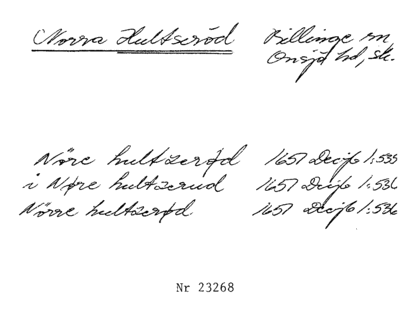 Norra Hultseröd Billinge sn
Onsjö hd, Sk.
Nöre hultzerød 1657 Decjb 1:535
i Nøre hultzerud 1657 Decjb 1:536
Nörre hultzerød 1657 Decjb 1:536
Nr 23268